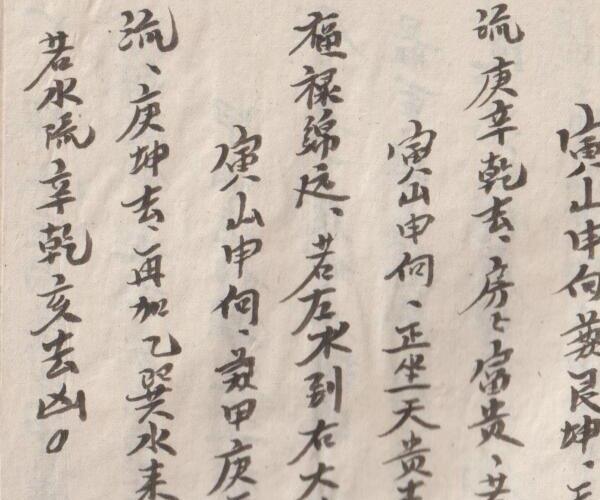 寅山申向兼艮坤、
流庚辛乾去、房房富贵、若
寅山申向、正坐一天贵
福禄绵远、若左水到右大
寅山申向、兼甲庚
流、庚坤去、再加乙巽水来
若水流辛乾亥去凶。